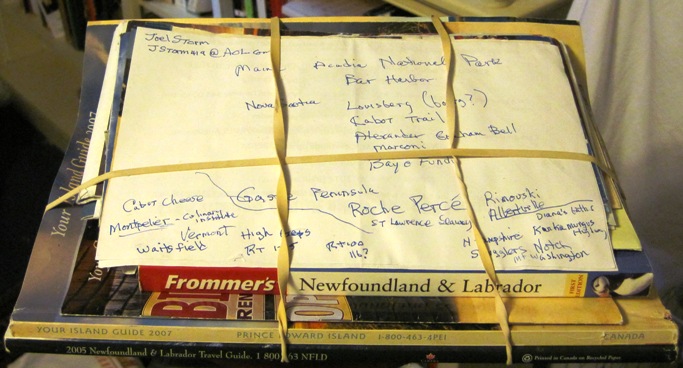 Joel Storm
JStorm419@AOL.com
Maine Acadia National Park
Bar Harbor
Nova Scotia Louisberg (bourg?)
Cabot Trail
Alexander Graham Bell
Marconi
Bay o Fundy
Gaspe Peninsula
Cabot Cheese
Roche Percé
Rimouski
Albertville
Montpelier - Culinary institute
ST Lawrence Seaway
Diana's baths
Vermont High
Kankamangus Highway
Waitsfield
RT 100
N Hampshire
Smugglers Notch
Mt Washington
Frommer's Newfoundland & Labrador
FIRST EDITION
Your Island Guide 2007
YOUR ISLAND GUIDE 2007 PRINCE EDWARD ISLAND 1-800-463-4PEI CANADA
2005 Newfoundland & Labrador Travel Guide. 1 800 563 NFLD Printed in Canada on Recycled Paper